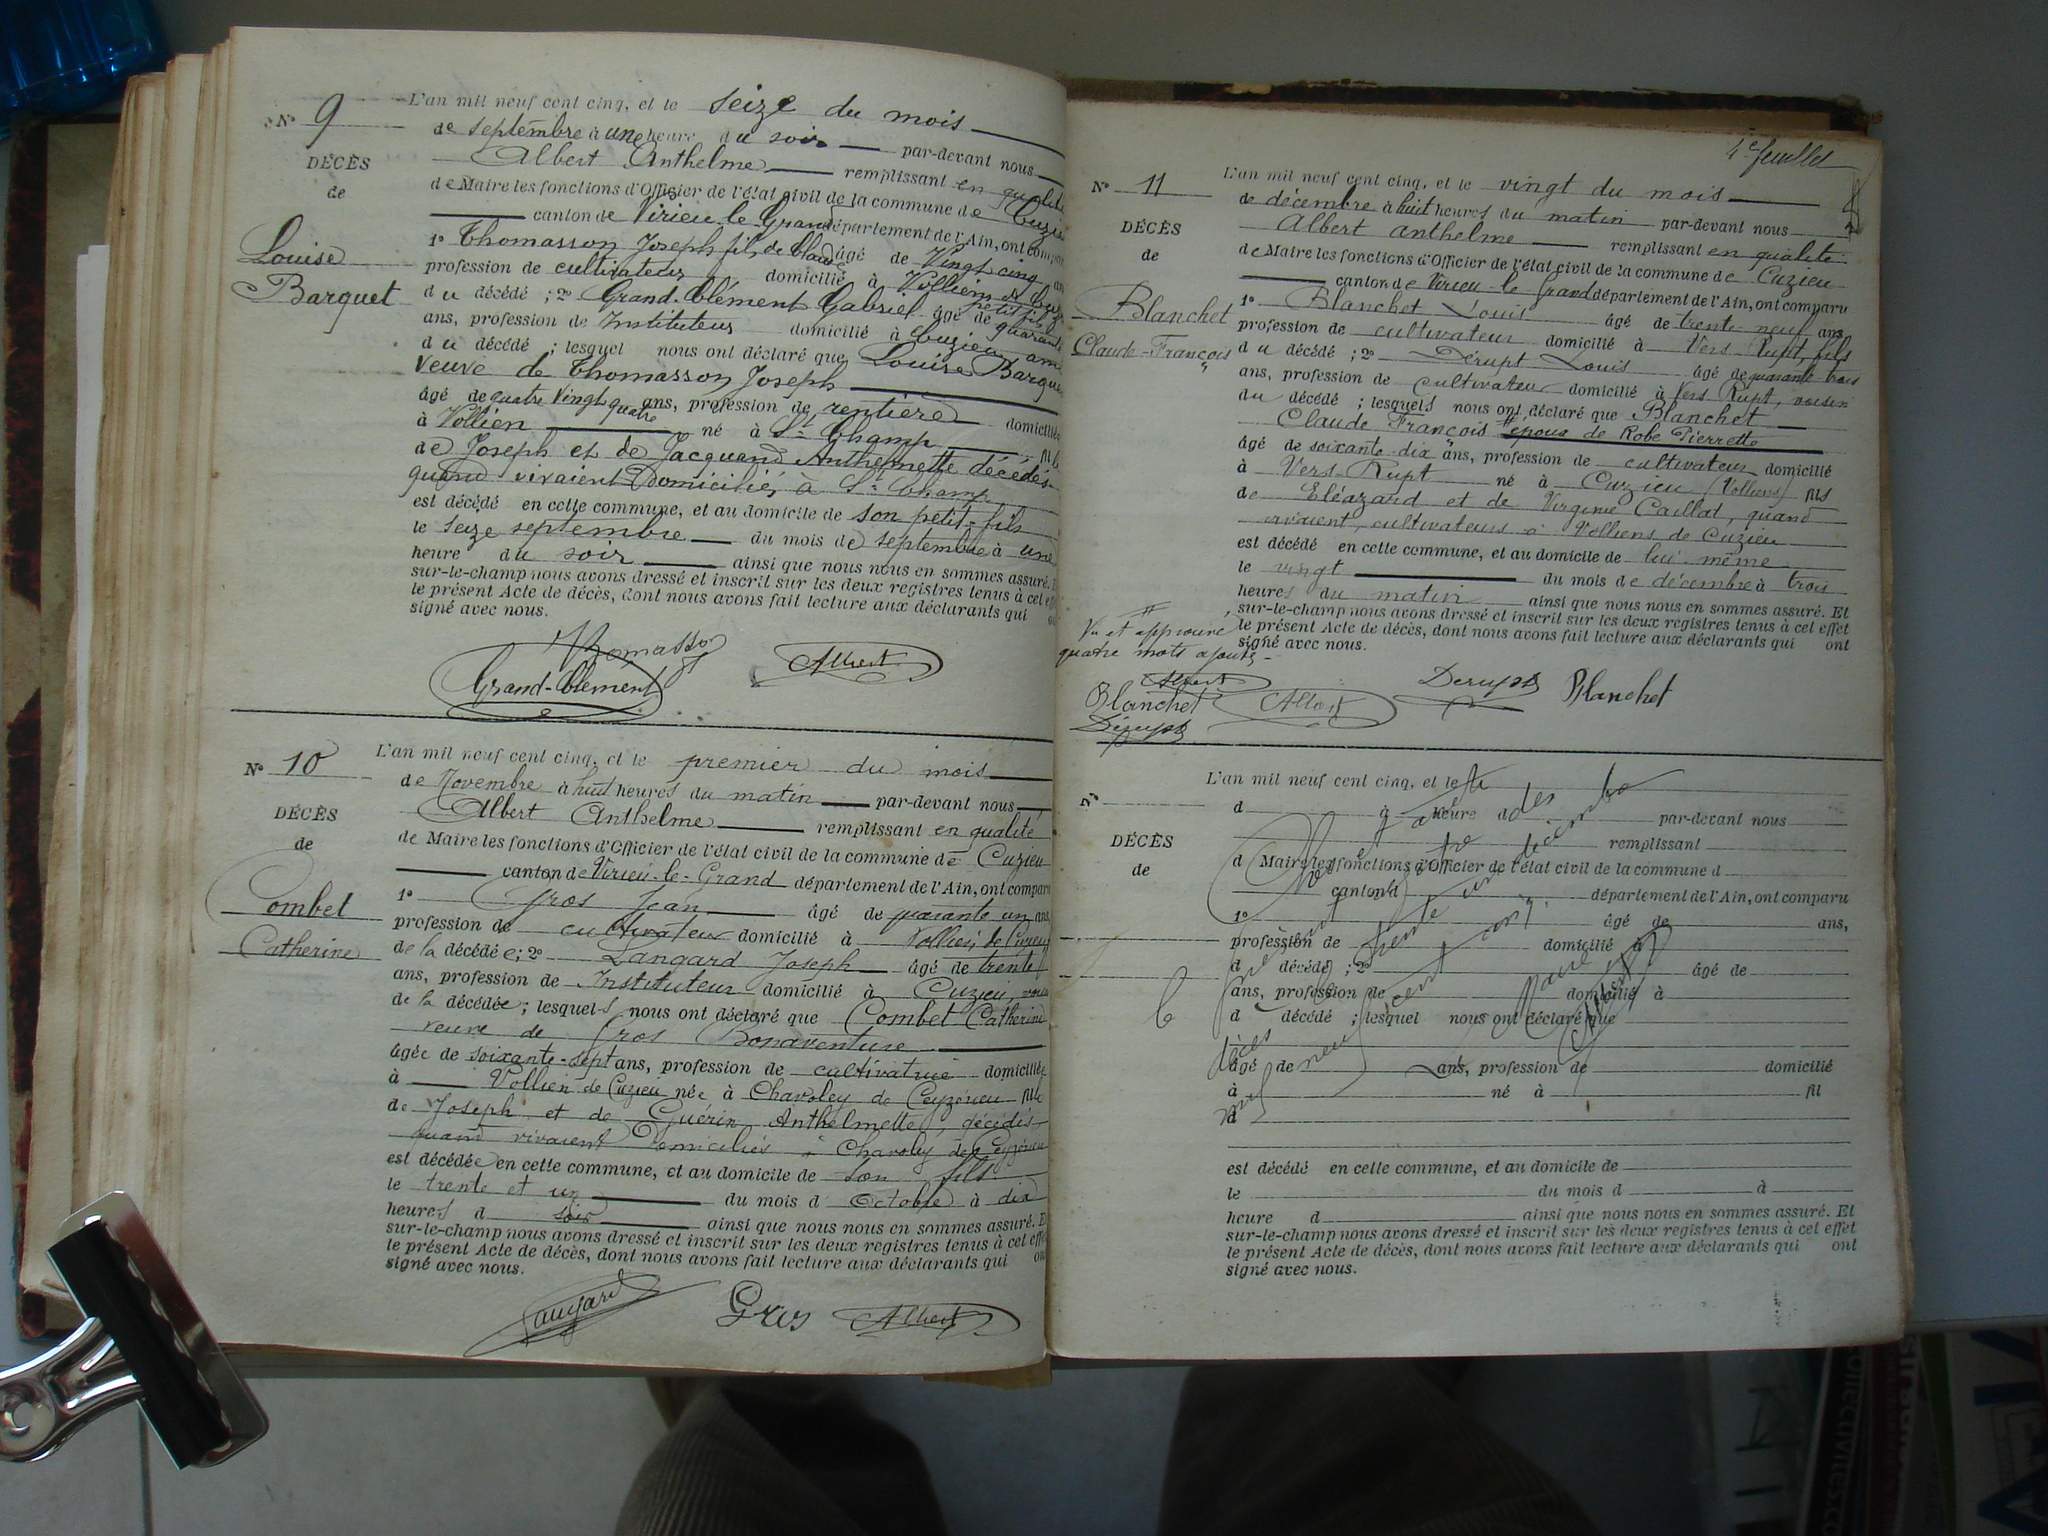 N° 9
DÉCÈS
de
Louise
Barquet
L'an mil neuf cent cinq, et le seize du mois
de septembre à une heure du soir par-devant nous
Albert Anthelme remplissant en qualité
de Maire les fonctions d'Officier de l'état civil de la commune de Cuzieu
canton de Virieu le Grand département de l'Ain, ont comparu
1° Thomasson Joseph fils de Claude âgé de Vingt cinq
profession de cultivateur domicilié à Vollien de Cuz petit fils
du décédé ; 2° Grand-Clément Gabriel âgé de quarante
ans, profession de Instituteur domicilié à Cuzieu ami
du décédé ; lesquel nous ont déclaré que Louise Barquet
Veuve de Thomasson Joseph
âgé de quatre Vingt quatre ans, profession de rentière domicilié
à Vollien né à St Champ fille
de Joseph et de Jacquand Anthelmette décédés
quand vivaient Domiciliés à St Champ
est décédé en cette commune, et au domicile de son petit-fils
le Seize septembre du mois de septembre à une
heure du soir ainsi que nous nous en sommes assuré. Et
sur-le-champ nous avons dressé et inscrit sur les deux registres tenus à cet effet
le présent Acte de décès, dont nous avons fait lecture aux déclarants qui
signé avec nous.
Thomasson
Grand-Clément Albert
N° 10
DÉCÈS
de
Combet
Catherine
L'an mil neuf cent cinq, et le premier du mois
de Novembre à huit heures du matin par-devant nous
Albert Anthelme remplissant en qualité
de Maire les fonctions d'Officier de l'état civil de la commune de Cuzieu
canton de Virieu-le-Grand département de l'Ain, ont comparu
1° Gros Jean âgé de quarante un ans,
profession de cultivateur domicilié à Vollien de Cuzieu
de la décédée ; 2° Langard Joseph âgé de trente
ans, profession de Instituteur domicilié à Cuzieu,
de la décédée ; lesquels nous ont déclaré que Combet Catherine
veuve de Gros Bonaventure
âgée de soixante-sept ans, profession de cultivatrice domiciliée
à Vollien de Cuzieu née à Chavoley de Ceyzérieu fille
de Joseph et de Guérin Anthelmette, décédés
quand vivaient Domiciliés à Chavoley de Ceyzérieu
est décédée en cette commune, et au domicile de son fils
le trente et un du mois d Octobre à dix
heures d soir ainsi que nous nous en sommes assuré. Et
sur-le-champ nous avons dressé et inscrit sur les deux registres tenus à cet effet
le présent Acte de décès, dont nous avons fait lecture aux déclarants qui ont
signé avec nous.
Gros Albert
4e feuillet
N° 11
DÉCÈS
de
Blanchet
Claude-François
L'an mil neuf cent cinq, et le vingt du mois
de décembre à huit heures du matin par-devant nous
Albert anthelme remplissant en qualité
de Maire les fonctions d'Officier de l'état civil de la commune de Cuzieu
canton de Virieu-le-Grand département de l'Ain, ont comparu
1° Blanchet Louis âgé de trente-neuf ans,
profession de cultivateur domicilié à Vers Rupt, fils
du décédé ; 2° Dérupt Louis âgé de quarante trois
ans, profession de cultivateur domicilié à Vers Rupt, voisin
du décédé ; lesquels nous ont déclaré que Blanchet
Claude François # époux de Robe Pierrette
âgé de soixante-dix ans, profession de cultivateur domicilié
à Vers-Rupt né à Cuzieu (Volliens) fils
de Eléazard et de Virginie Caillat, quand
vivaient, cultivateurs à Volliens de Cuzieu
est décédé en cette commune, et au domicile de lui-même
le vingt du mois de décembre à trois
heures du matin ainsi que nous nous en sommes assuré. Et
sur-le-champ nous avons dressé et inscrit sur les deux registres tenus à cet effet
le présent Acte de décès, dont nous avons fait lecture aux déclarants qui ont
signé avec nous.
#
Vu et approuvé
quatre mots ajoutés
Albert
Blanchet Albert Derupt Blanchet
Dérupt
N°
DÉCÈS
de
L'an mil neuf cent cinq, et le
d à heure d par-devant nous
remplissant
d Maire les fonctions d'Officier de l'état civil de la commune d
canton d département de l'Ain, ont comparu
1° âgé de ans,
profession de domicilié à
d décédé ; 2° âgé de
ans, profession de domicilié à
d décédé ; lesquel nous ont déclaré que
âgé de ans, profession de domicilié
à né à fil
d
est décédé en cette commune, et au domicile de
le du mois d à
heure d ainsi que nous nous en sommes assuré. Et
sur-le-champ nous avons dressé et inscrit sur les deux registres tenus à cet effet
le présent Acte de décès, dont nous avons fait lecture aux déclarants qui ont
signé avec nous.
trente un décembre
neuf cent cinq.
Maire